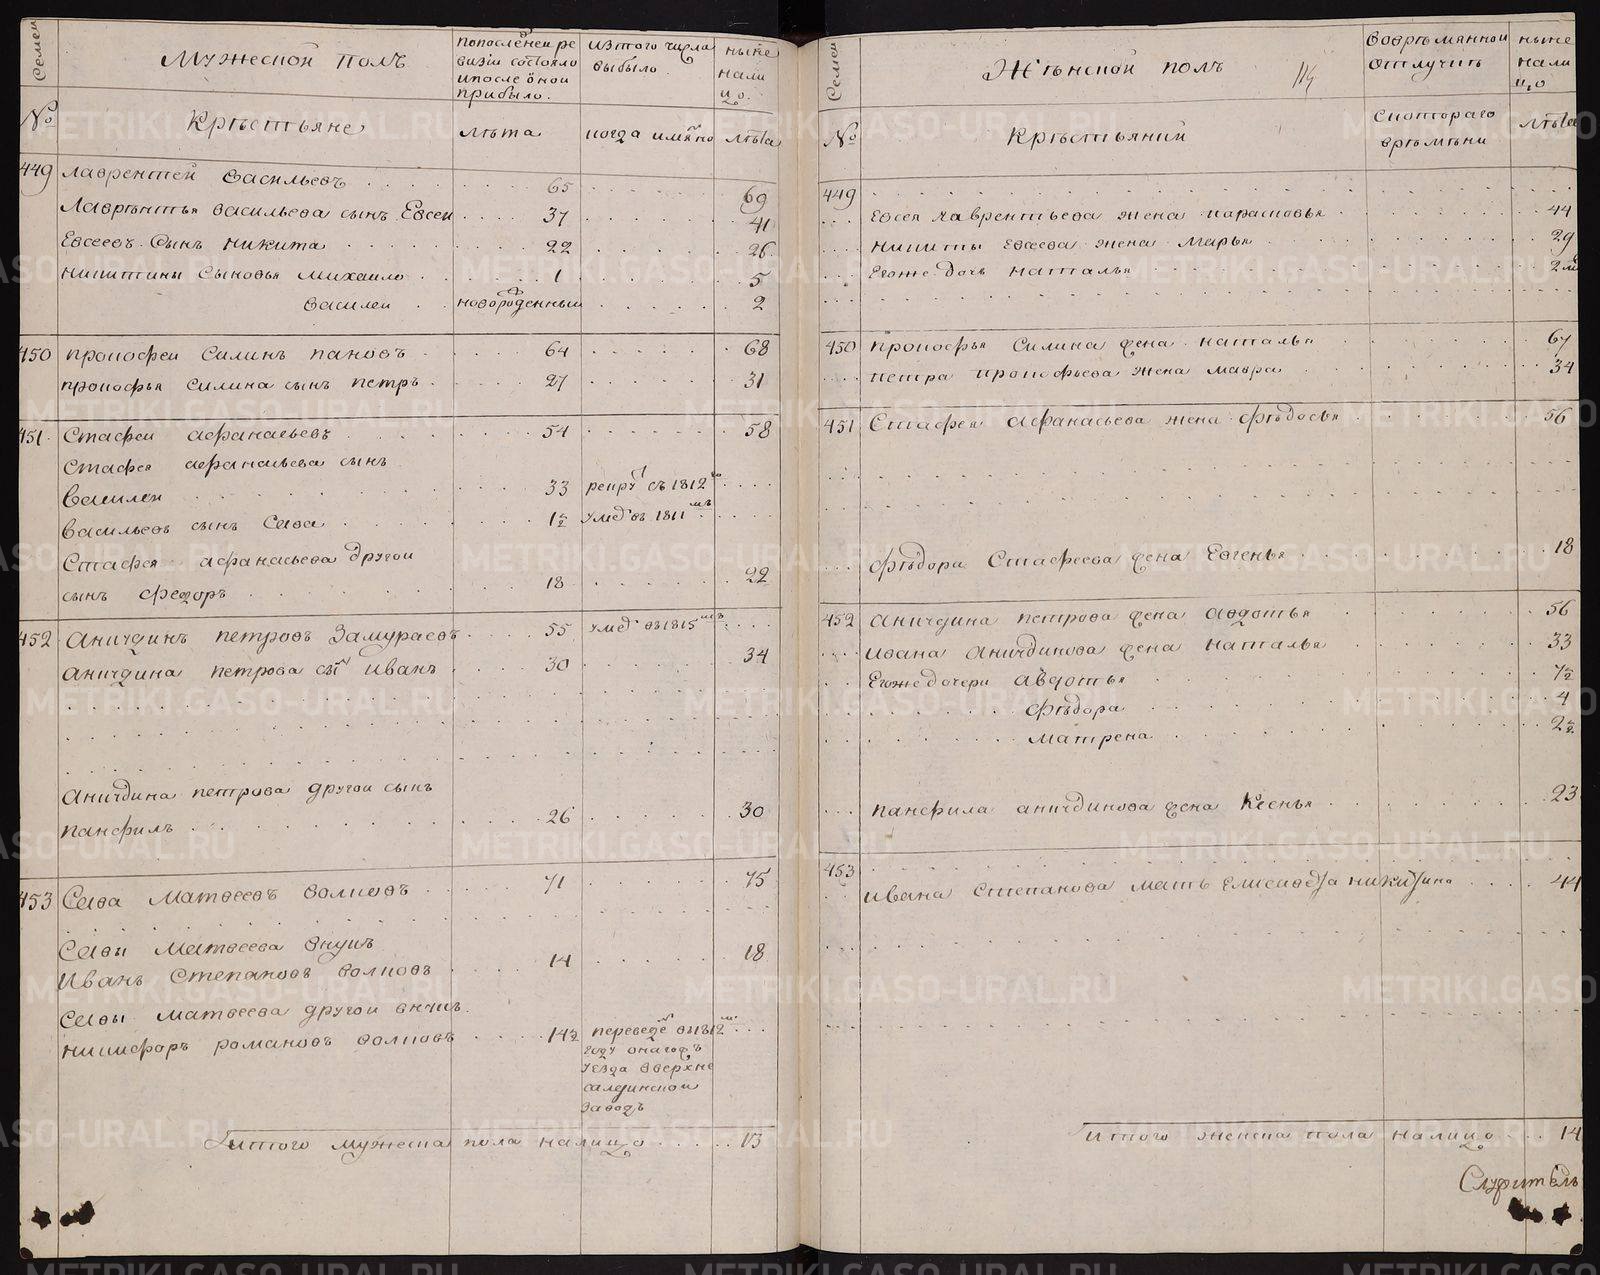 Семеи
Мужеской полъ
По последней ре
визiи состояло
и после оной
прибыло.
Из того числа
выбыло
ныне
нали
цо.
№
Крестьяне
лета
когда имянно
лета
449 Лаврентей Васильевъ 65 69
Лаврентья Васильева сынъ Евсей 37 41
Евсеевъ сынъ Никита 22 26
Никитины сыновья Михайло 1 5
Василей новорожденный 2
450 Прокофей Силинъ Пановъ 64 68
Прокофья Силина сынъ Петръ 27 31
451 Стафей Афанасьевъ 54 58
Стафея Афанасьева сынъ
Василей 33 рекру съ 1812го
Васильевъ сынъ Сава 1½ умер въ 1811мъ
Стафея Афанасьева другой
сынъ Федоръ 18 22
452 Аникдинъ Петровъ Замураевъ 55 умер въ 1815мъ
Аникдина Петрова сы Иванъ 30 34
Аникдина Петрова другой сынъ
Панфилъ 26 30
453 Сава Матвеевъ Волковъ 71 75
Савы Матвеева внукъ
Иванъ Степановъ Волковъ 14 18
Савы Матвеева другой внукъ
Никифоръ Романовъ Волковъ 14½ переведе в 1812м
году онагожъ
уезда в верхне
салдинской
заводъ
Итого мужеска пола налицо 13
Семеи
Женской полъ
114
Во временной
отлучке
ныне
нали
цо
№
Крестьянки
с котораго
времени
лета
449
Евсея Лаврентьева жена Парасковья 44
Никиты Евсеева жена Марья 29
Его же дочь Наталья 2 ме
450 Прокофья Силина жена Наталья 67
Петра Прокофьева жена Мавра 34
451 Стафея Афанасьева жена Федосья 56
Федора Стафеева жена Евгенья 18
452 Аникдина Петрова жена Авдотья 56
Ивана Аникдинова жена Наталья 33
Его же дочери Авдотья 7½
Федора 4
Матрена 2½
Панфила Аникдинова жена Ксенья 23
453
Ивана Степанова мать Елисавета Никитина 44
Итого женска пола налицо 14
Служитель
METRIKI.GASO-URAL.RU